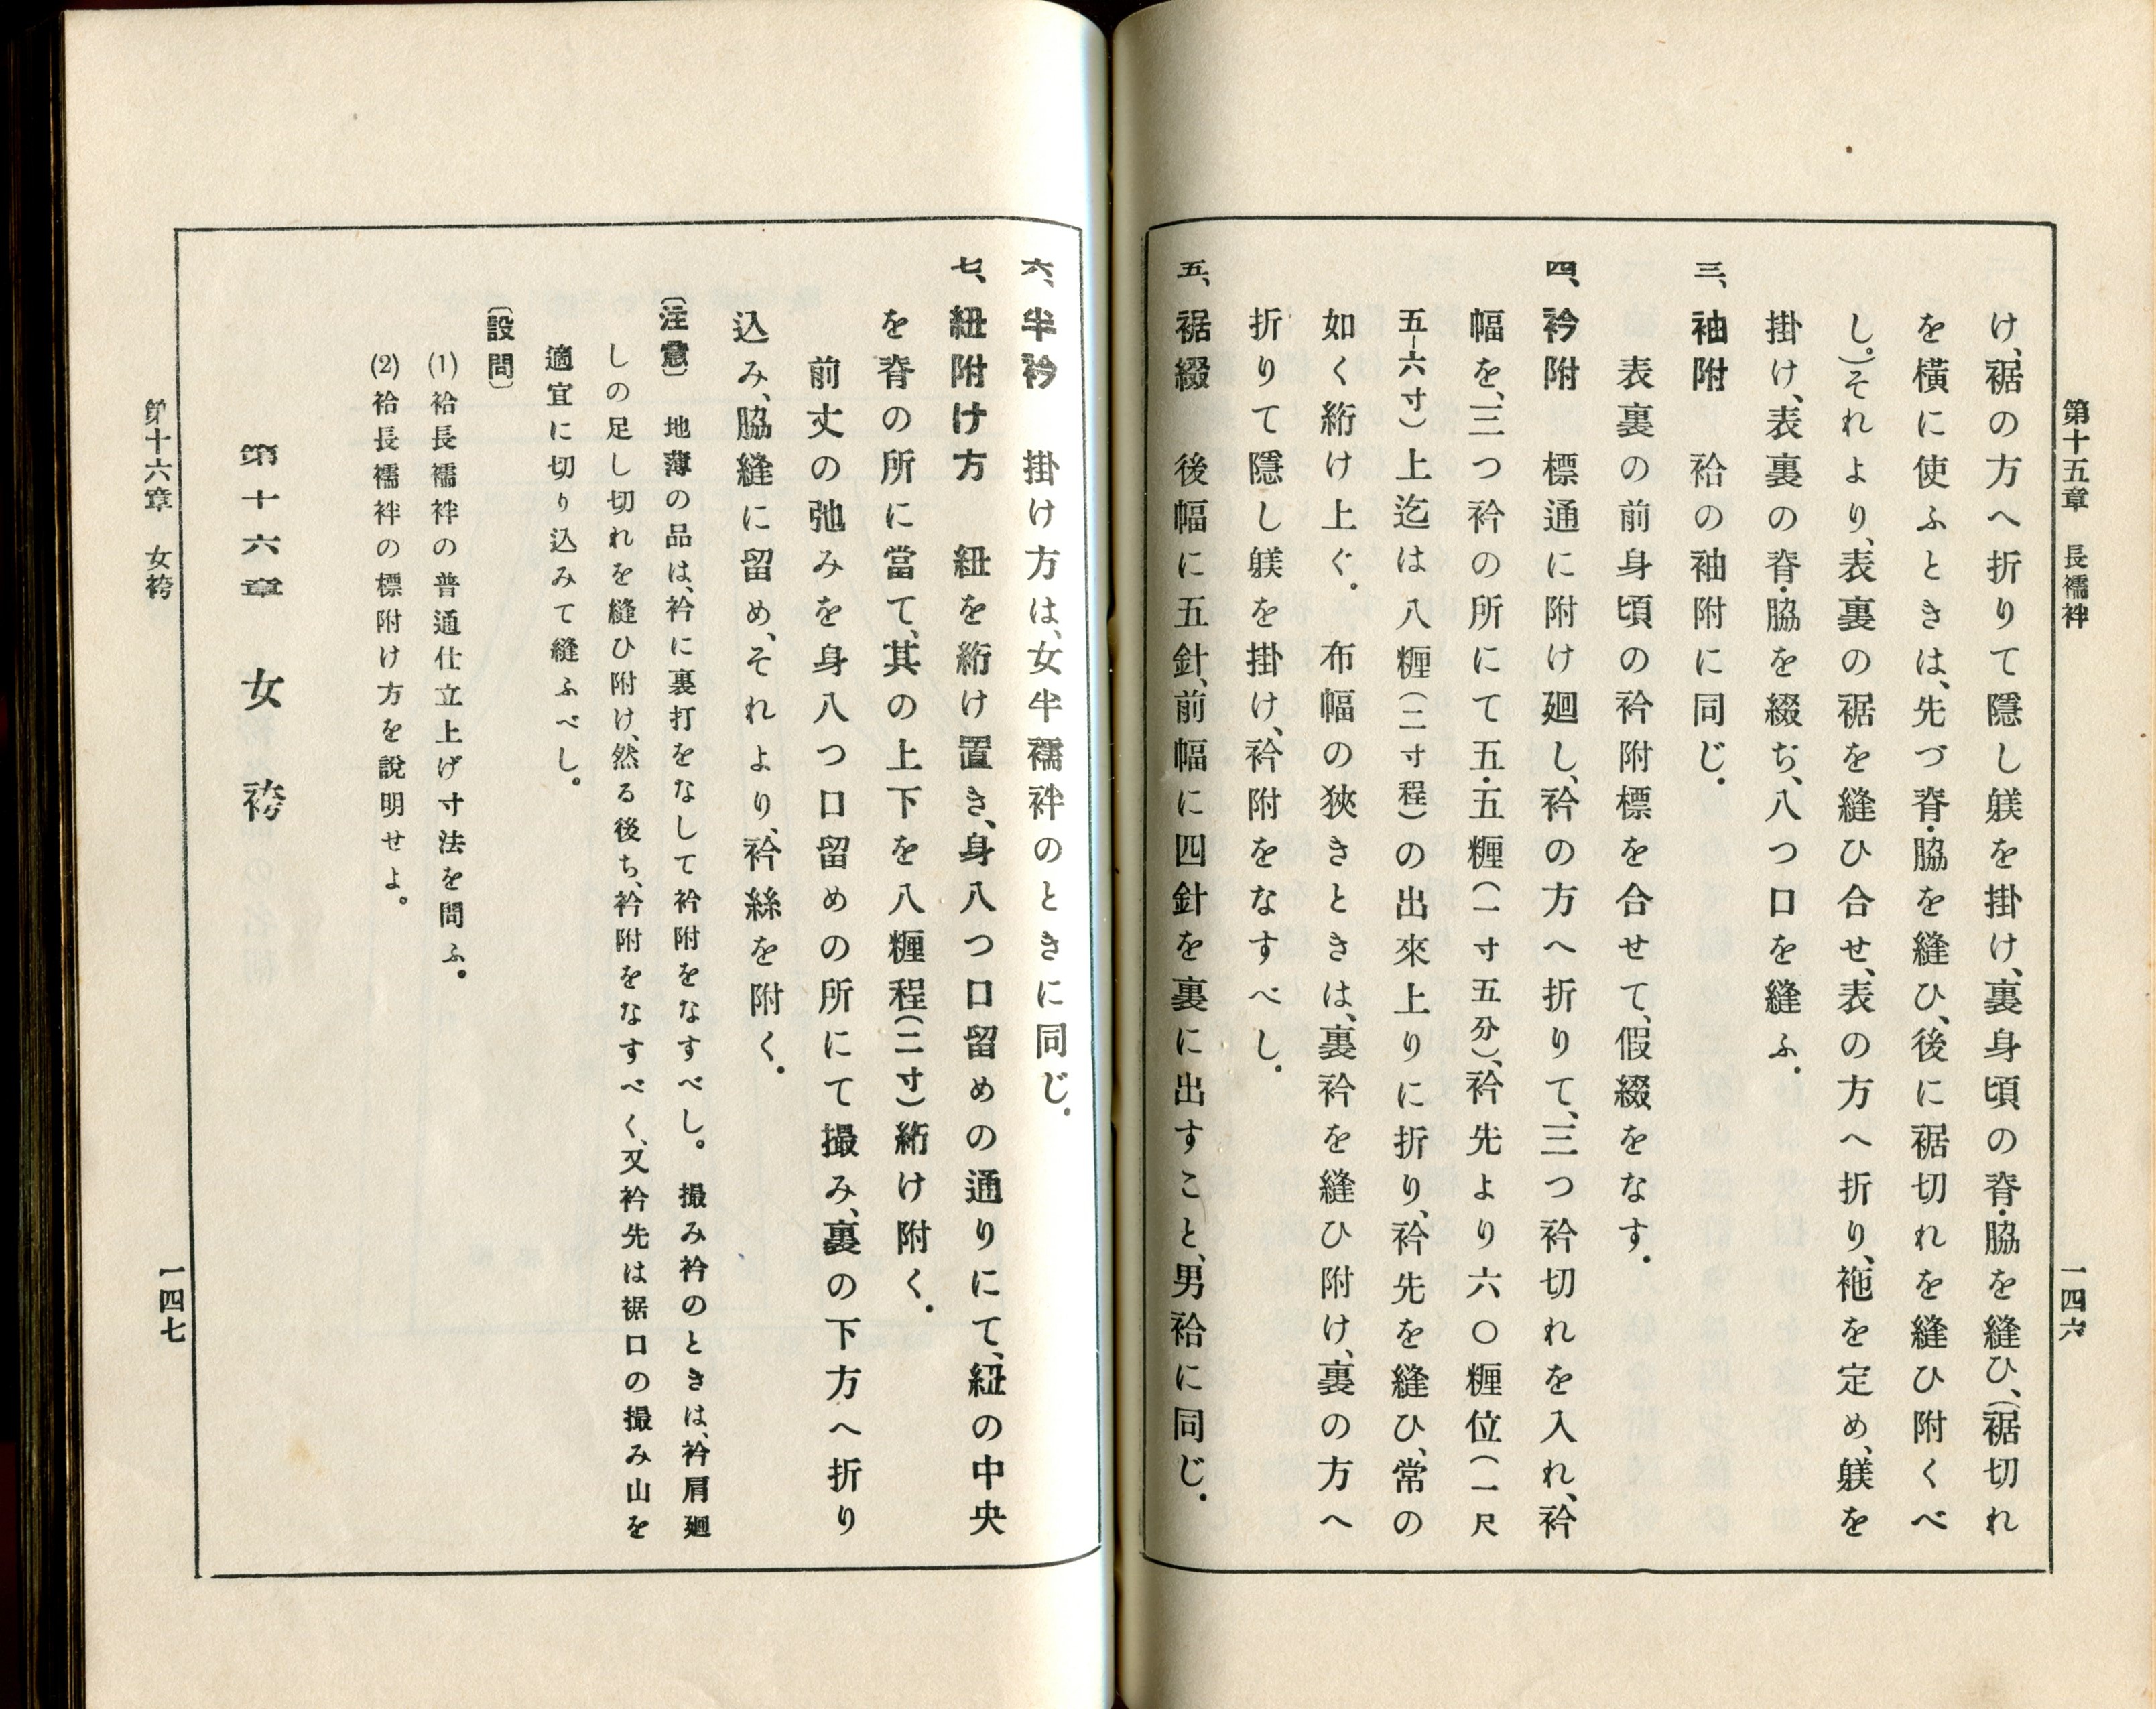 第十五章　長襦袢
一四六
け、裾の方へ折りて隱し躾を掛け、裏身頃の脊・脇を縫ひ、(裾切れ
を橫に使ふときは、先づ脊・脇を縫ひ、後に裾切れを縫ひ附くべ
し。)それより、表裏の裾を縫ひ合せ、表の方へ折り、袘を定め、躾を
掛け、表裏の脊・脇を綴ぢ、八つ口を縫ふ.
三、袖附　袷の袖附に同じ.
表裏の前身頃の衿附標を合せて、假綴をなす.
四、衿附　標通に附け廻し、衿の方へ折りて、三つ衿切れを入れ、衿
幅を、三つ衿の所にて五・五糎(一寸五分)、衿先より六〇糎位(一尺
五—六寸)上迄は八糎(二寸程)の出來上りに折り、衿先を縫ひ、常の
如く絎け上ぐ.　布幅の狹きときは、裏衿を縫ひ附け、裏の方へ
折りて隱し躾を掛け、衿附をなすべし.
五、裾綴　後幅に五針、前幅に四針を裏に出すこと、男袷に同じ.
六、半衿　掛け方は、女半襦袢のときに同じ.
七、紐附け方　紐を絎け置き、身八つ口留めの通りにて、紐の中央
を脊の所に當て、其の上下を八糎程(二寸)絎け附く.
前丈の弛みを身八つ口留めの所にて撮み、裏の下方へ折り
込み、脇縫に留め、それより、衿絲を附く.
〔注意〕　地薄の品は、衿に裏打をなして衿附をなすべし。撮み衿のときは、衿肩廻
しの足し切れを縫ひ附け、然る後ち、衿附をなすべく、又衿先は裾口の撮み山を
適宜に切り込みて縫ふべし。
〔設問〕
(1) 袷長襦袢の普通仕立上げ寸法を問ふ。
(2) 袷長襦袢の標附け方を說明せよ。
第十六章　女袴
第十六章　女袴
一四七